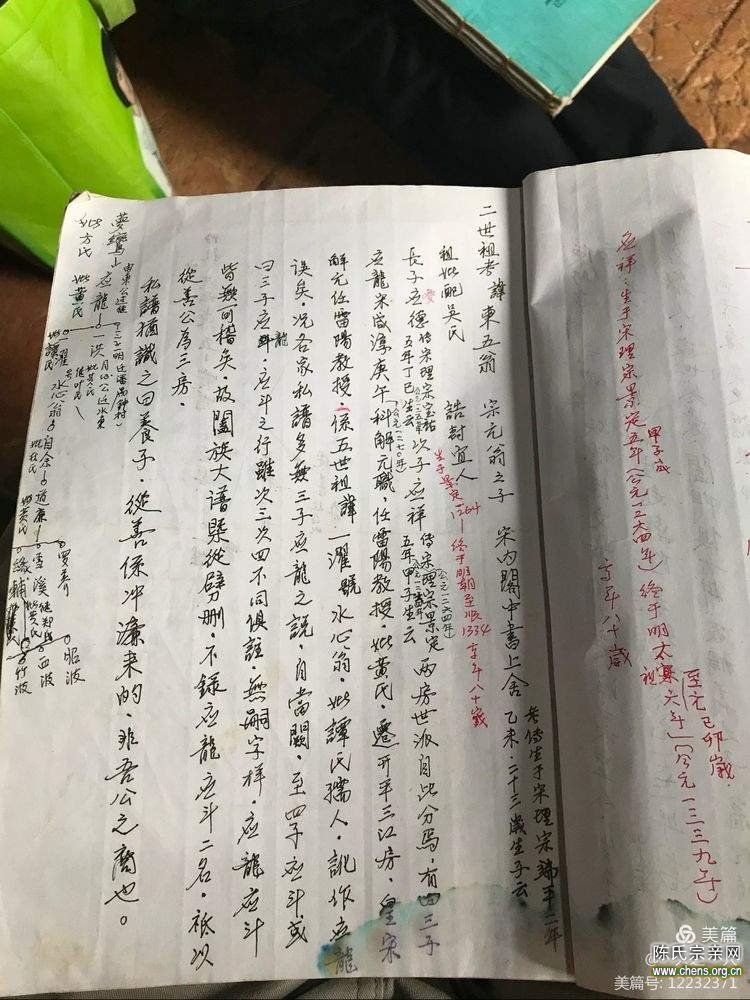 应祥：生于宋理宗景定五年（公元一二六四年）终于明太祖六年」（公元一三三九年）
甲子歲
至元己卯歲
享年八十歲
二世祖考諱東五翁　宗元翁之子　宋内閣中書上舍　乙未．二十三歲生子云．
考傳生于宋理宗端平二年
祖妣配吴氏　誥封宜人
生于景定1264—终于明朝至順1334 享年八十歲
長子应德 传宋理宗宝祐五年丁巳生云 次子应祥 传宋理宗景定五年甲子生．云 两房世派自此分焉，有曰三子
（公元一二六四年）
应龍宋咸淳庚午科解元職，任雷陽教授．妣黃氏．遷开平三江房．皇宋
（公元一二七〇年）
解元任雷陽教授．係五世祖諱一濯號水心翁．妣譚氏孺人．訛作应龍
误矣．况各家私譜多無三子应龍之説，自當闕．至四子应斗或
曰三子应龍．应斗之行雖次三次四不同俱註．無嗣字样．应龍应斗
皆無可稽矣．故闔族大谱槩從劈刪．不錄应龍应斗二名．祗以
從善公為三房．
私譜猶識之曰養子．從善係冲濂来的．非吾公之裔也。
应龍
妣黃氏
妣方氏
水心翁
道廉
雪溪
昭波
西波
竹波
美篇
美篇号: 12232371
陈氏宗亲网
www.chens.org.cn